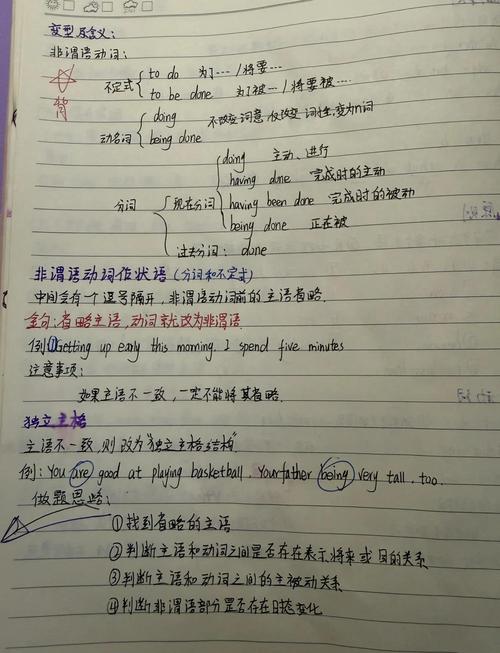 变型及含义:
非谓语动词:
背
不定式 { to do 为了… /将要…
to be done 为了被… /将要被…
动名词 { doing 不改变词意,仅改变词性,变为n词
being done
分词 { 现在分词 { doing 主动、进行
having done 完成时的主动
having been done 完成时的被动
being done 正在被
过去分词: done
非谓语动词作状语(分词和不定式)
中间会有一个逗号隔开,非谓语动词前的主语省略.
金句:省略主语,动词就改为非谓语
例①Getting up early this morning. I spend five minutes
注意事项:
如果主语不一致,一定不能将其省略.
独立主格
主语不一致,则改为"独立主格结构"
例: You are good at playing basketball. Your father being very tall. too.
做题思路:
①找到省略的主语
②判断主语和动词之间是否存在表示将来或目的关系
③判断主语和动词之间的主被动关系
④判断非谓语部分是否存在时态变化